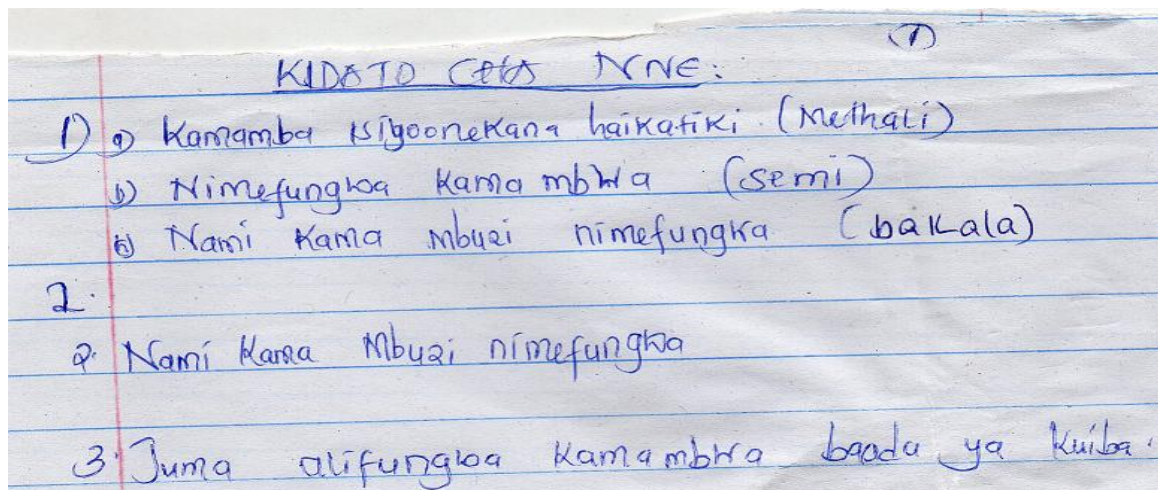 (1)
KIDATO CHA NNE:
1) a) Kamamba isigoonekana haikatiki. (Methali)
b) Nimefungwa kama mbwa (semi)
c) Nami kama mbuzi nimefungka (bakala)
2.
a. Nami kama Mbuzi nimefungwa
3. Juma alifungwa kama mbwa baada ya kuiba.